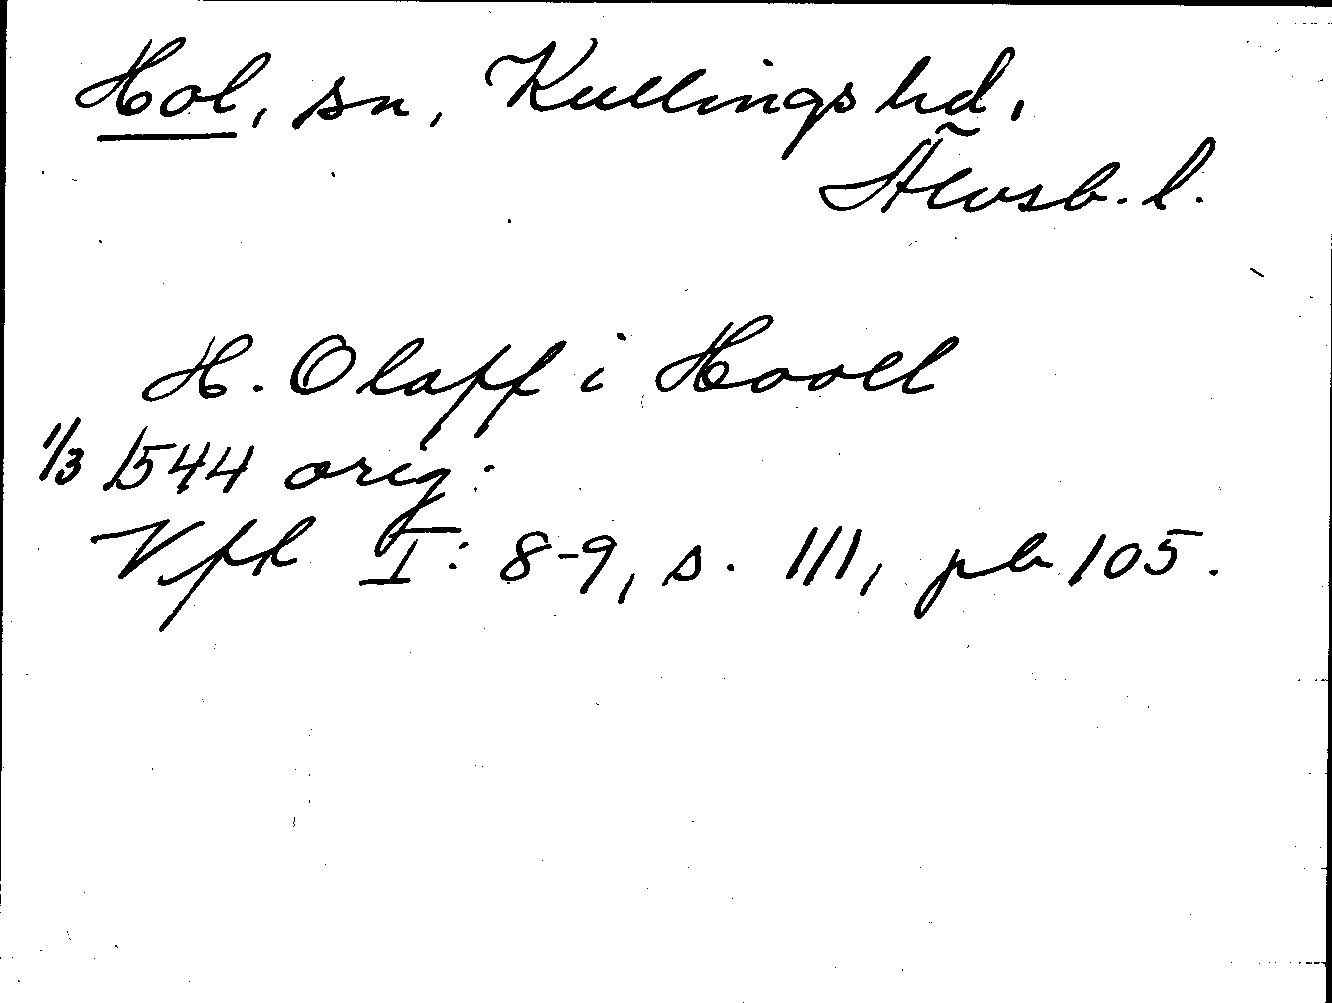 Hol, sn, Kullings hd,
Älvsb. l.
H. Olaff i Hooll
1/3 1544 orig.
Vfh I: 8-9, s. 111, pb 105.